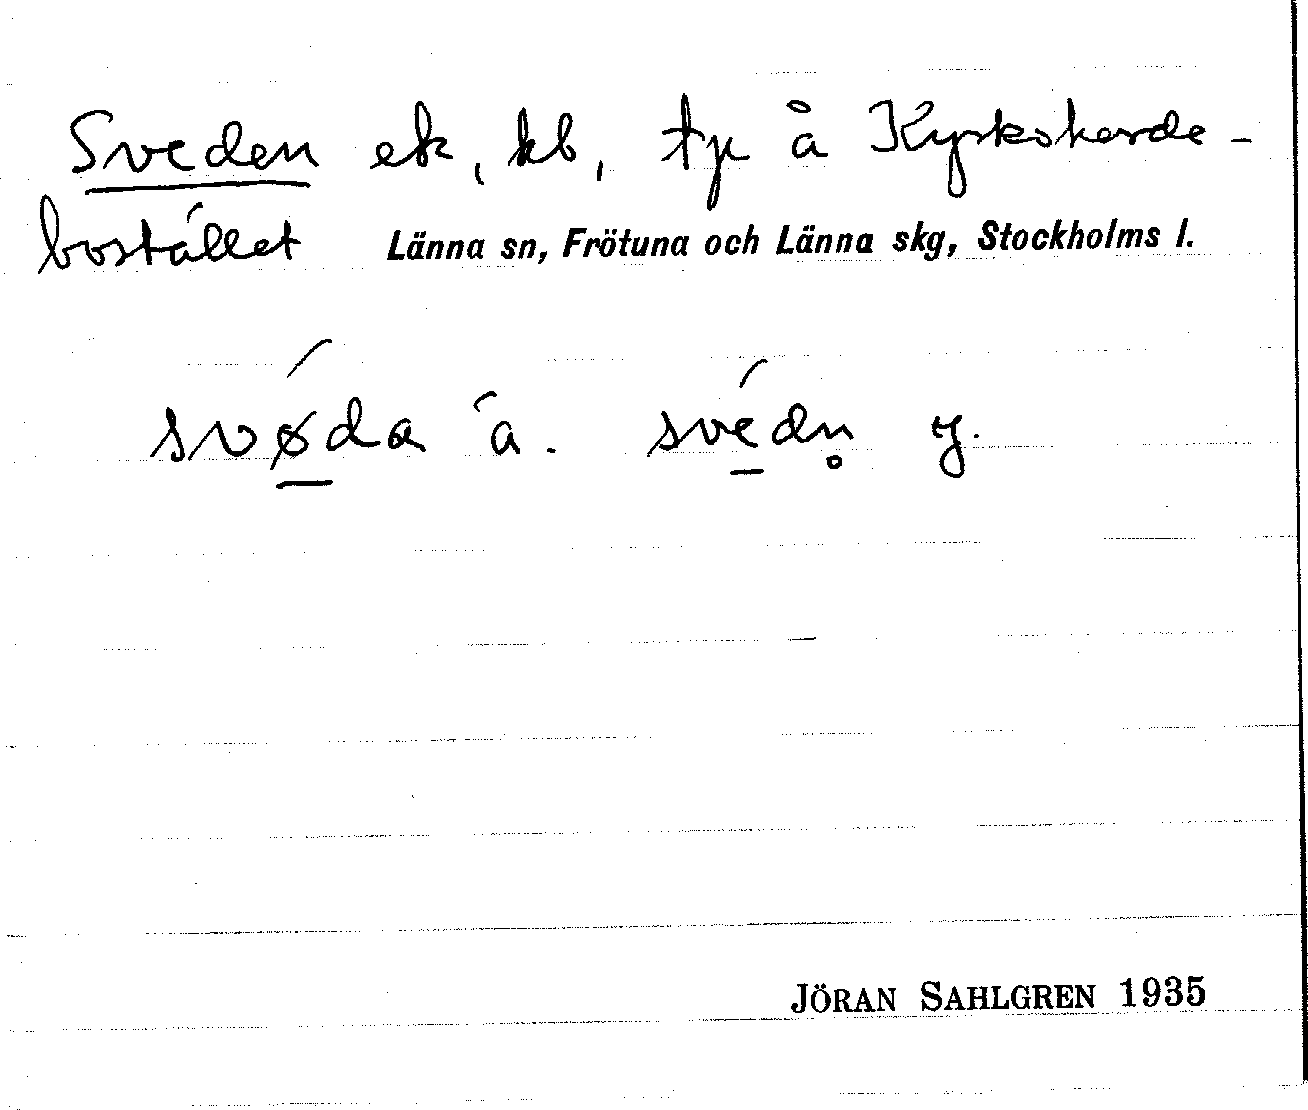 Sveden ek, kb, tp å Kyrkoherde-
bostället Länna sn, Frötuna och Länna skg, Stockholms l.
svǿ̱da ä. své̱dn̥ y.
JÖRAN SAHLGREN 1935